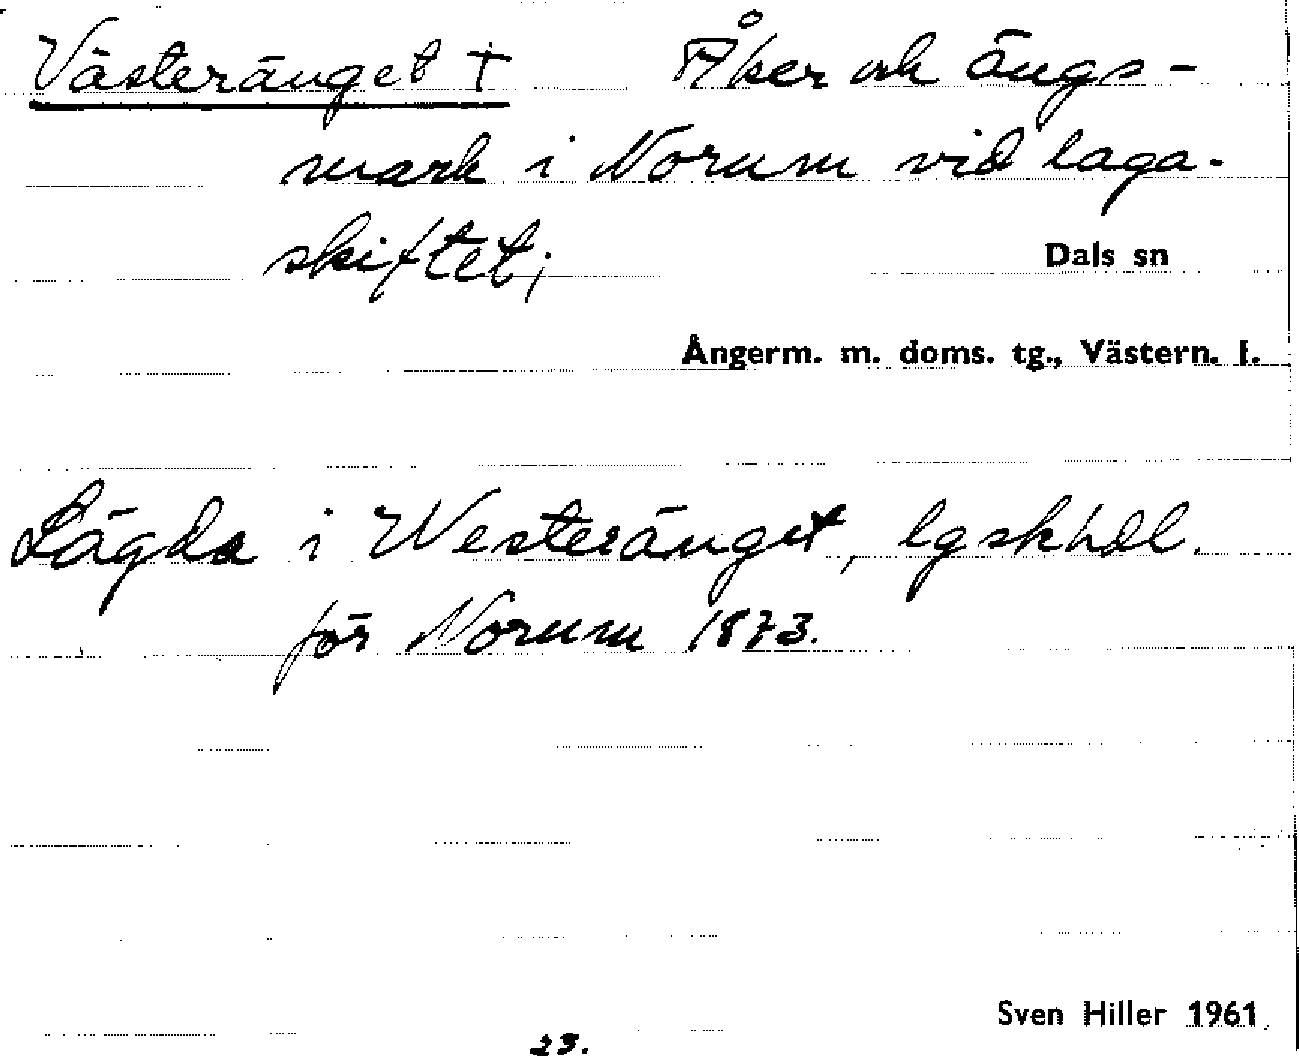 Västeränget † Åker och ängs-
mark i Norum vid laga-
skiftet;
Dals sn
Ångerm. m. doms. tg., Västern. l.
Lägda i Westeränget, lgskhdl.
för Norum 1873.
Sven Hiller 1961
23.